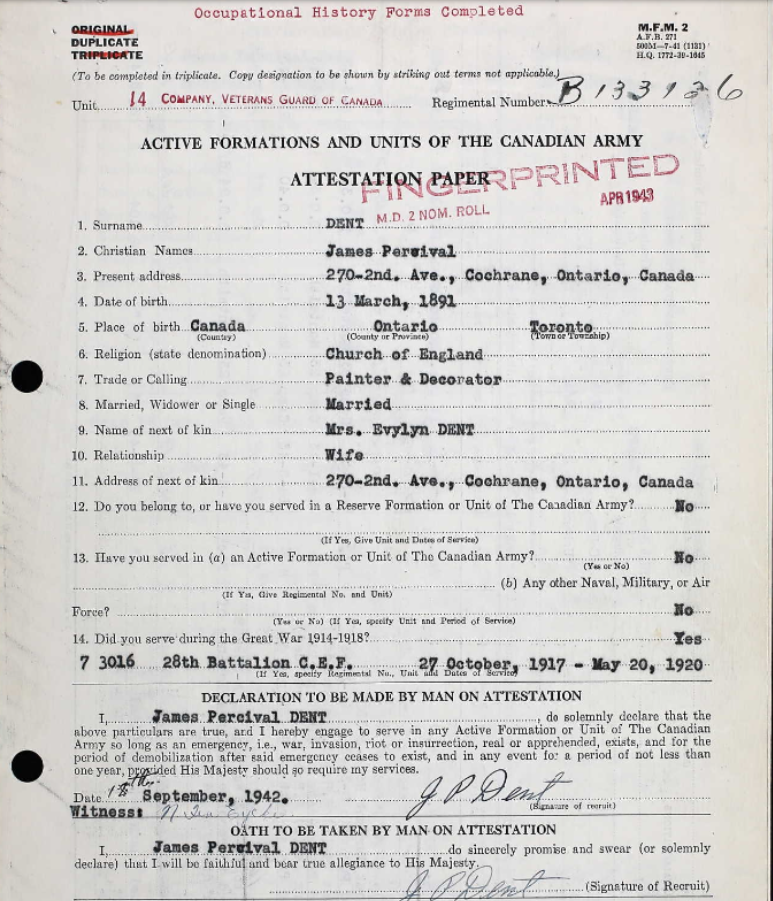 Occupational History Forms Completed
ORIGINAL
DUPLICATE
TRIPLICATE
M.F.M. 2
A.F.B. 271
500M—7-41 (1131)
H.Q. 1772-39-1645
(To be completed in triplicate. Copy designation to be shown by striking out terms not applicable.)
Unit 14 COMPANY, VETERANS GUARD OF CANADA Regimental Number B 133136
ACTIVE FORMATIONS AND UNITS OF THE CANADIAN ARMY
ATTESTATION PAPER
FINGERPRINTED
M.D. 2 NOM. ROLL
APR 1943
1. Surname DENT
2. Christian Names James Percival
3. Present address 270-2nd. Ave., Cochrane, Ontario, Canada
4. Date of birth 13 March, 1891
5. Place of birth Canada Ontario Toronto
(Country) (County or Province) (Town or Township)
6. Religion (state denomination) Church of England
7. Trade or Calling Painter & Decorator
8. Married, Widower or Single Married
9. Name of next of kin Mrs. Evylyn DENT
10. Relationship Wife
11. Address of next of kin 270-2nd. Ave., Cochrane, Ontario, Canada
12. Do you belong to, or have you served in a Reserve Formation or Unit of The Canadian Army? No
(If Yes, Give Unit and Dates of Service)
13. Have you served in (a) an Active Formation or Unit of The Canadian Army? No
(Yes or No)
(b) Any other Naval, Military, or Air
(If Yes, Give Regimental No. and Unit)
Force? No
(Yes or No) (If Yes, specify Unit and Period of Service)
14. Did you serve during the Great War 1914-1918? Yes
7 3016 28th Battalion C.E.F. 27 October, 1917 - May 20, 1920
(If Yes, specify Regimental No., Unit and Dates of Service)
DECLARATION TO BE MADE BY MAN ON ATTESTATION
I, James Percival DENT, do solemnly declare that the
above particulars are true, and I hereby engage to serve in any Active Formation or Unit of The Canadian
Army so long as an emergency, i.e., war, invasion, riot or insurrection, real or apprehended, exists, and for the
period of demobilization after said emergency ceases to exist, and in any event for a period of not less than
one year, provided His Majesty should so require my services.
Date September, 1942. J P Dent
(Signature of recruit)
Witness:
OATH TO BE TAKEN BY MAN ON ATTESTATION
I, James Percival DENT do sincerely promise and swear (or solemnly
declare) that I will be faithful and bear true allegiance to His Majesty.
J P Dent (Signature of Recruit)